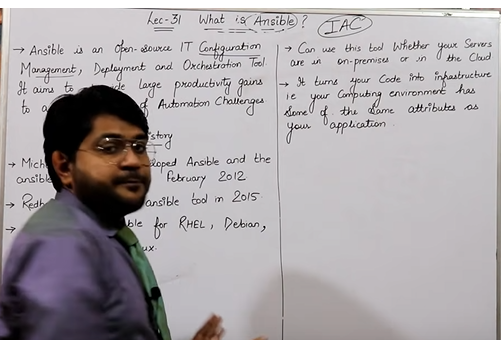 Lec-31 What is Ansible ? IAC
→ Ansible is an Open-source IT Configuration
Management, Deployment and Orchestration Tool.
It aims to large productivity gains
to a of Automation Challenges
→ Mich loped Ansible and the
ansible February 2012
→ Redh ansible tool in 2015.
→ ble for RHEL, Debian,
ux.
→ Can use this tool Whether your Servers
are in on-premises or in the Cloud
→ It turns your Code into infrastructure
i.e your Computing environment has
Some of the Same attributes as
your application.